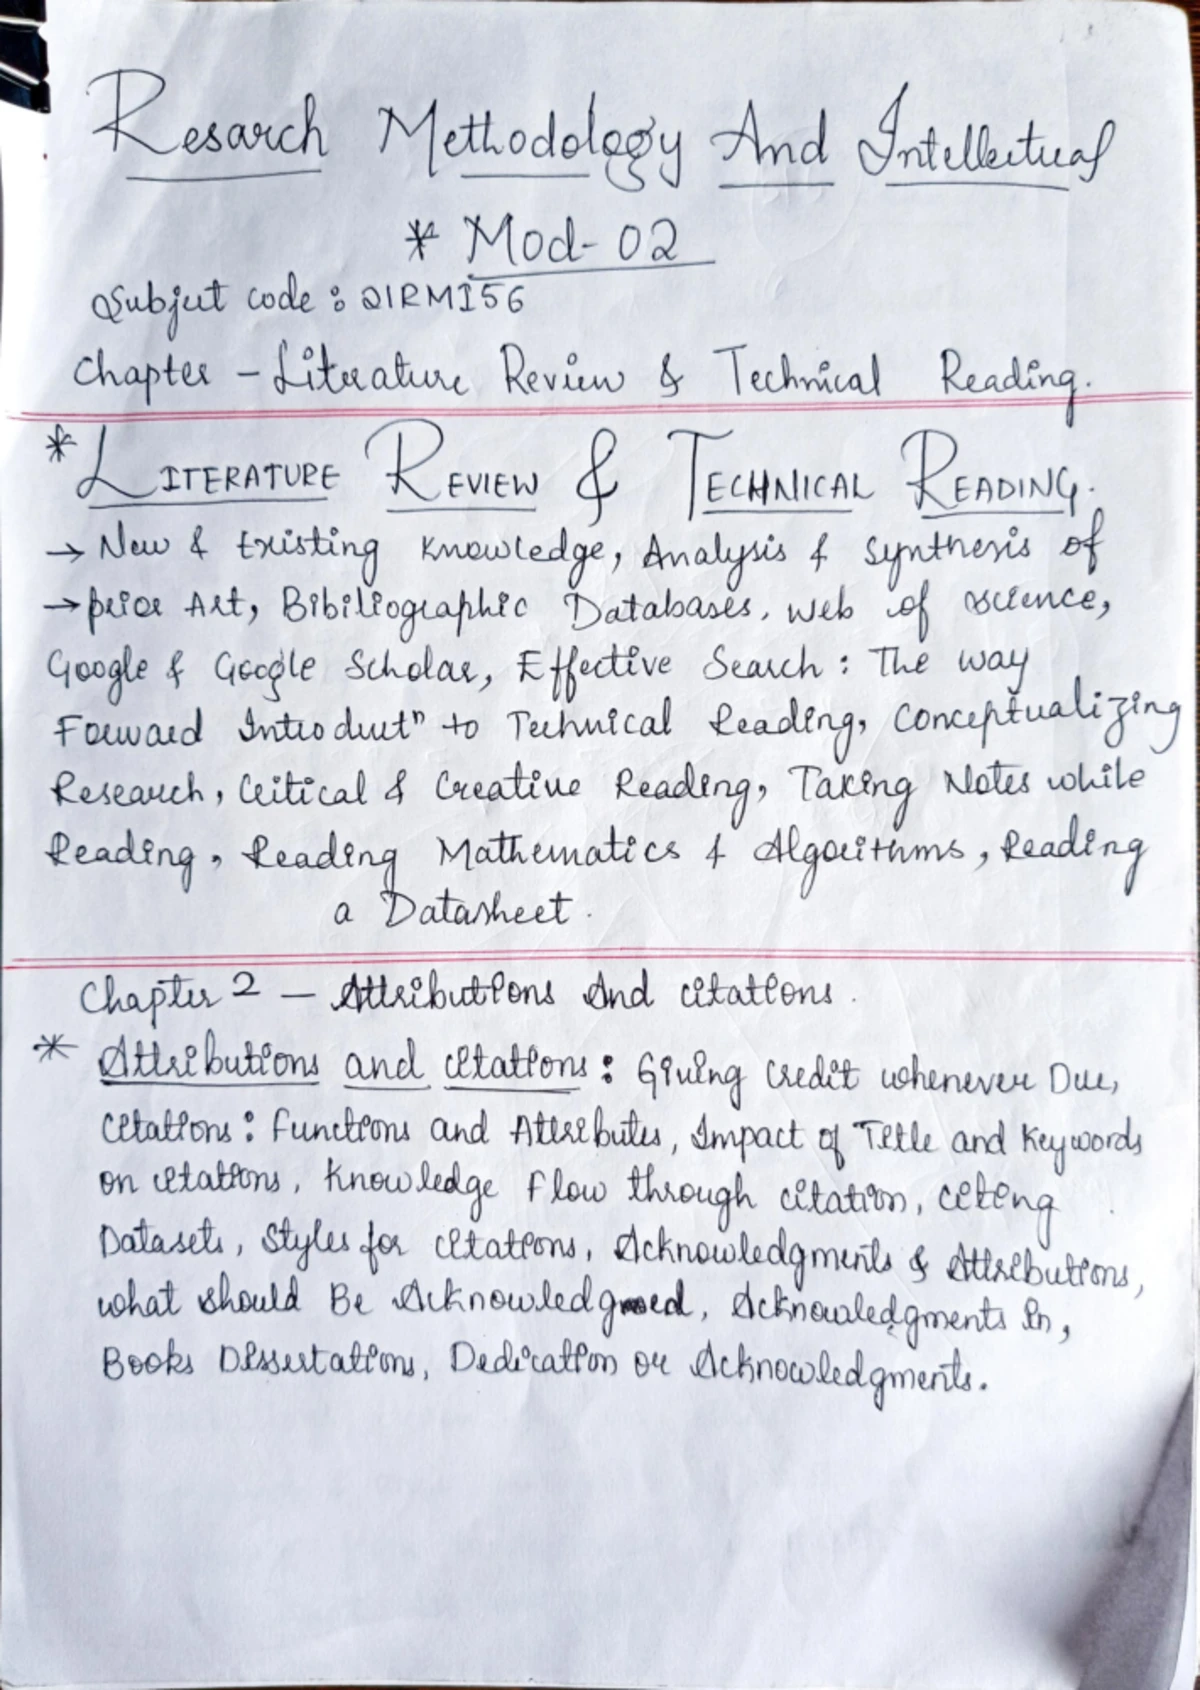 Resarch Methodology And Intellectual
* Mod- 02
Subject code : 21RMI56
Chapter - Literature Review & Technical Reading.
* LITERATURE REVIEW & TECHNICAL READING.
→ New & Existing Knowledge, Analysis & Synthesis of
→ prior Art, Bibiliographic Databases, web of science,
Google & Google Scholar, Effective Search : The way
Forward Introductⁿ to Technical Reading, Conceptualizing
Research, Critical & Creative Reading, Taking Notes while
Reading, Reading Mathematics & Algorithms, Reading
a Datasheet.
Chapter 2 — Attributions And citations.
* Attributions and citations : Giving Credit whenever Due,
Citations : Functions and Attributes, Impact of Title and Keywords
on citations, Knowledge Flow through citation, citing
Datasets, Styles for citations, Acknowledgments & Attributions,
what should Be Acknowledged, Acknowledgments in,
Books Dissertations, Dedication or Acknowledgments.